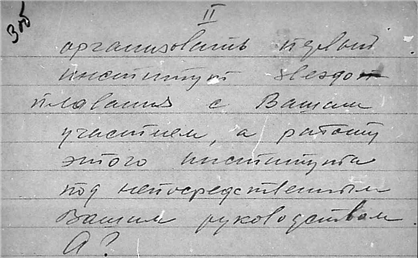 II
306
организовать первый
институт звездо
плавания с Вашим
участием, а работу
этого института
под непосредственным
Вашим руководством.
А?